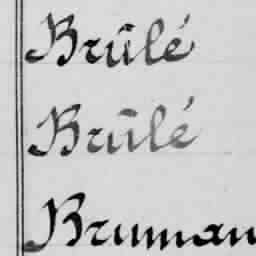 Brûlé
Brûlé
Bruman